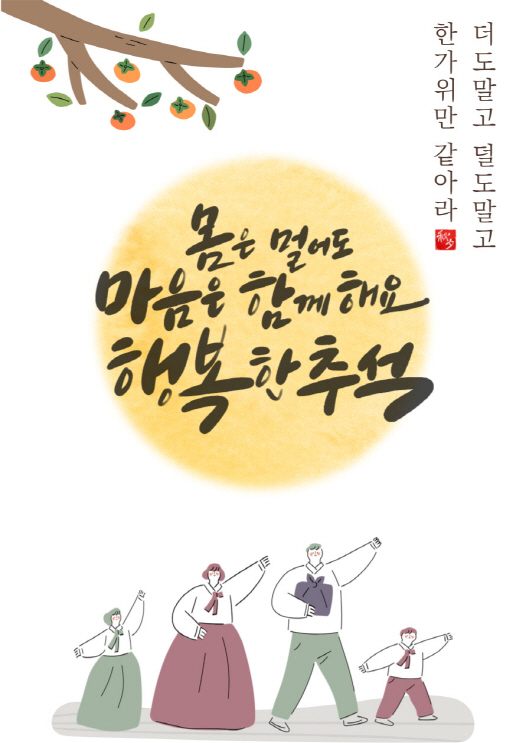 더도말고 덜도말고
한가위만 같아라
몸은 멀어도
마음은 함께해요
행복한 추석